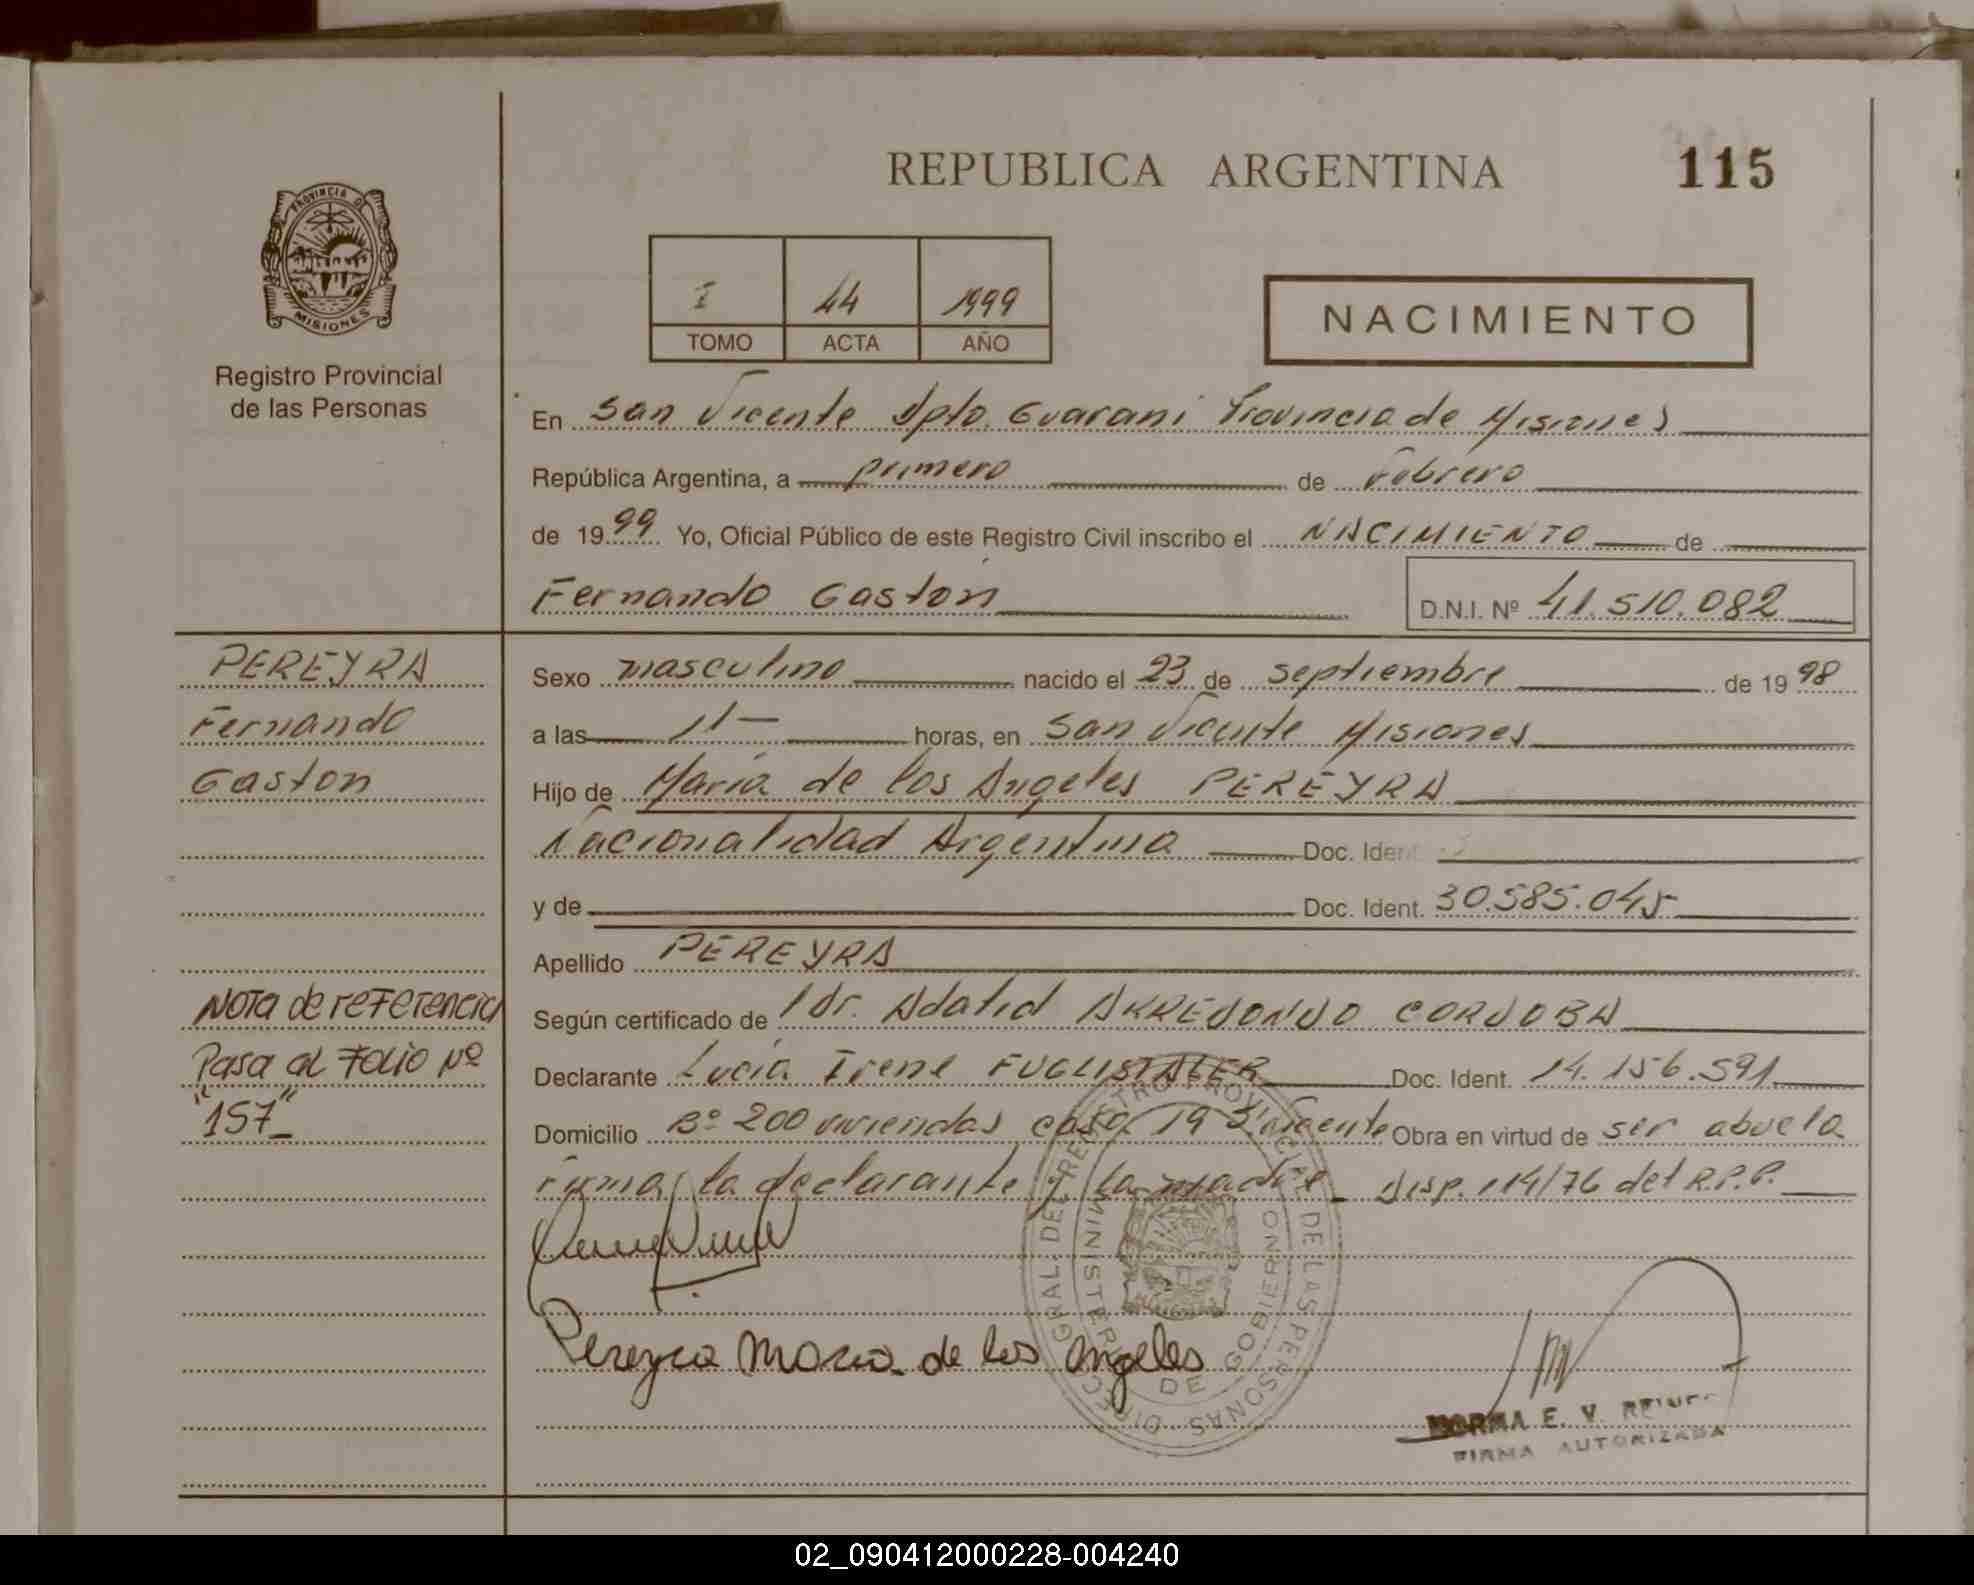 REPUBLICA ARGENTINA
115
PROVINCIA DE
MISIONES
Registro Provincial
de las Personas
I 44 1999
TOMO ACTA AÑO
NACIMIENTO
En San Vicente Dpto. Guarani Provincia de Misiones
República Argentina, a primero de Febrero
de 1999 Yo, Oficial Público de este Registro Civil inscribo el NACIMIENTO de
Fernando Gaston
D.N.I. Nº 41.510.082
PEREYRA
Fernando
Gaston
Sexo masculino nacido el 23 de septiembre de 1998
a las 11- horas, en San Vicente Misiones
Hijo de María de los Angeles PEREYRA
Nacionalidad Argentina Doc. Ident.
y de Doc. Ident. 30.585.045
Apellido PEREYRA
Según certificado de Dr. Adalid ARREDONDO CORDOBA
Declarante Lucía Irene FUGLISTALER Doc. Ident. 14.156.591
Domicilio Bº 200 viviendas casa 19 S. Vicente Obra en virtud de ser abuela
Firma la declarante y la madre Disp. 114/76 del R.P.P.
Nota de referencia
Pasa al Folio Nº
"157"
Pereyra Maria de los Angeles
DIRECC. GRAL. DEL REGISTRO PROVINCIAL DE LAS PERSONAS
MINISTERIO DE GOBIERNO
NORMA E. V.
FIRMA AUTORIZADA
02_090412000228-004240